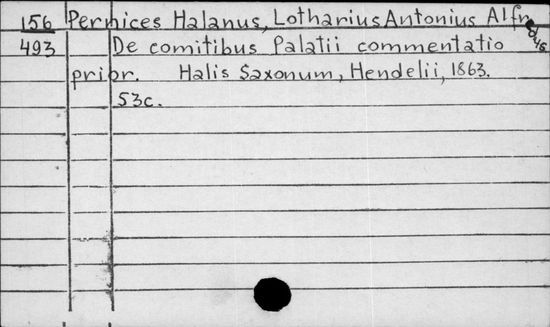 156 Pernices Halanus, Lotharius Antonius Alfredus
493 De comitibus Palatii commentatio
prior. Halis Saxonum, Hendelii, 1863.
53c.